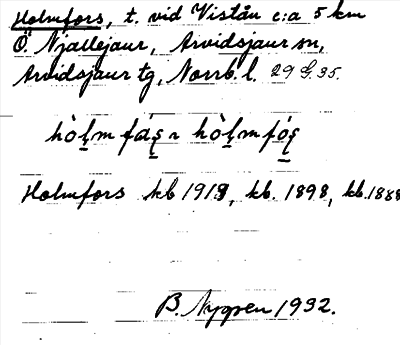 Holmfors, t. vid Vistån c:a 5 km
Ö. Njallejaur, Arvidsjaur sn,
Arvidsjaur tg, Norrb. l. 29 G. 35.
hòlm fấş ~ hòlmfóş
Holmfors kb 1918, kb. 1898, kb. 1888
B. Nygren 1932.